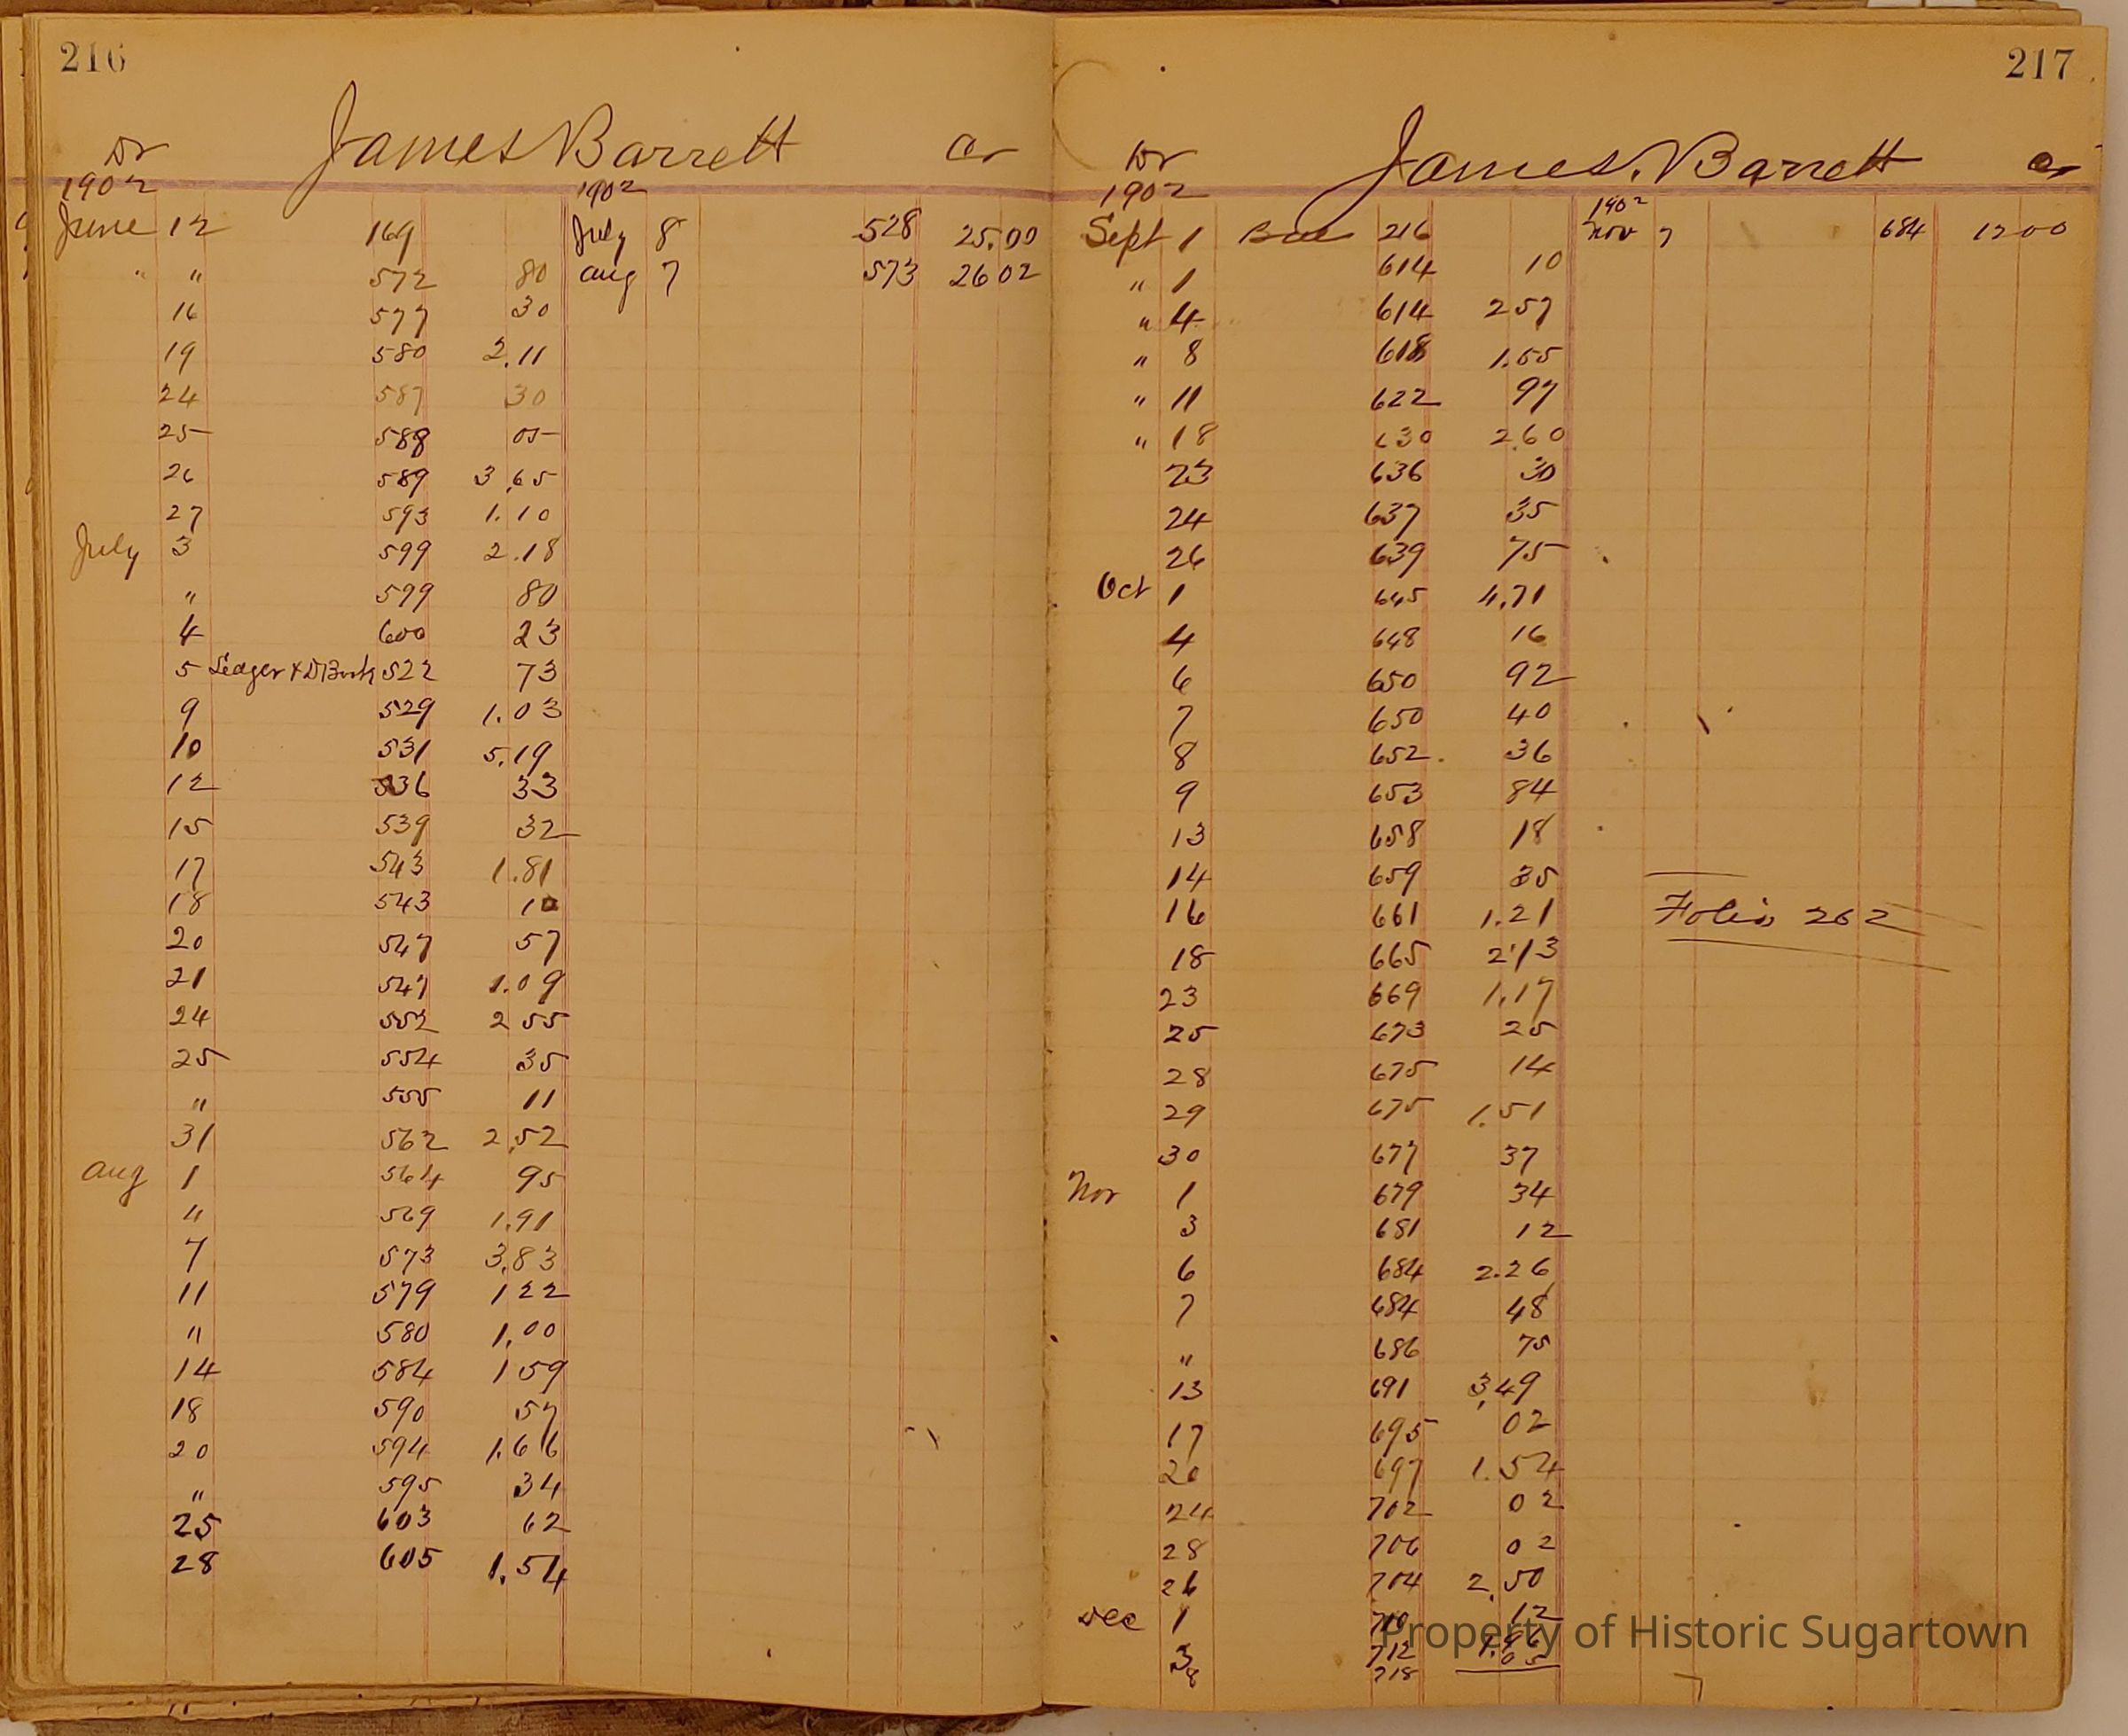 216
Dr James Barrett Cr
1902 1902
June 12 169 July 8 528 25.00
" " 572 80 Aug 7 573 26 02
16 577 30
19 580 2.11
24 587 30
25 588 05
26 589 3.65
27 593 1.10
July 3 599 2.18
" 599 80
4 600 23
5 Ledger & D Book 522 73
9 529 1.03
10 531 5.19
12 536 33
15 539 32
17 543 1.81
18 543 10
20 547 57
21 547 1.09
24 552 2 55
25 554 35
" 555 11
31 562 2.52
Aug 1 564 95
" 569 1.91
7 573 3.83
11 579 1 22
" 580 1.00
14 584 1 59
18 590 57
20 594 1.66
" 595 34
25 603 62
28 605 1.54
217
Dr James. Barrett Cr
1902 1902
Sept 1 Bal 216 Nov 7 684 12 00
" 1 614 10
" 4 614 2 57
" 8 618 1.55
" 11 622 97
" 18 630 2.60
23 636 30
24 637 35
26 639 75
Oct 1 645 4.71
4 648 16
6 650 92
7 650 40
8 652. 36
9 653 84
13 658 18
14 659 35
16 661 1.21 Folio 262
18 665 2.13
23 669 1.17
25 673 25
28 675 14
29 675 1.51
30 677 37
Nov 1 679 34
3 681 12
6 684 2.26
7 684 48
" 686 75
13 691 3.49
17 695 02
20 697 1.54
24 702 02
28 706 02
26 704 2.50
Dec 1 710 12
3 712
8 718 05
Property of Historic Sugartown